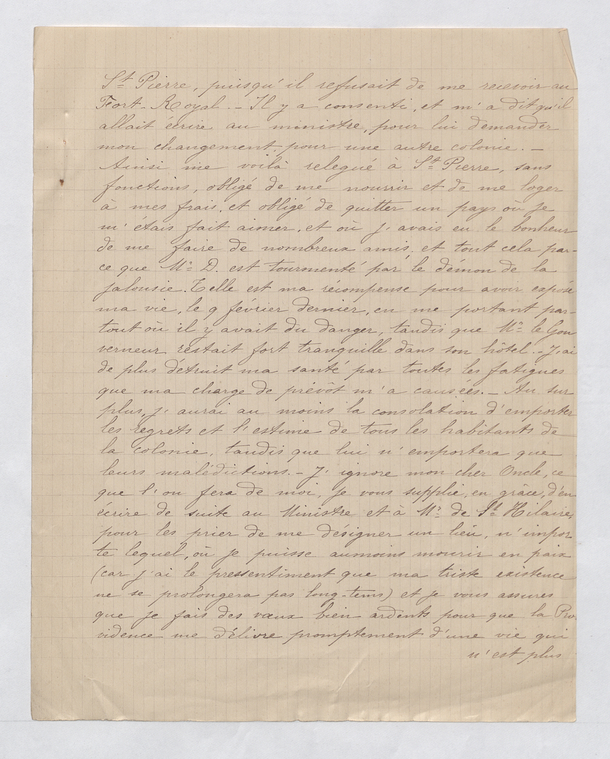 St Pierre, puisqu'il refusait de me recevoir au
Fort-Royal. - Il y a consenti, et m'a dit qu'il
allait écrire au ministre, pour lui demander
mon changement pour une autre colonie. -
Ainsi me voilà relegué à St Pierre, sans
fonctions, obligé de me nourrir et de me loger
à mes frais, et obligé de quitter un pays où je
m'étais fait aimer, et où j'avais eu le bonheur
de me faire de nombreux amis, et tout cela par-
ce que Mr D. est tourmenté par le démon de la
jalousie. Telle est ma récompense pour avoir exposé
ma vie, le 9 février dernier, en me portant par-
tout où il y avait du danger, tandis que Mr le Gou
verneur restait fort tranquille dans son hôtel. - J'ai
de plus détruit ma santé par toutes les fatigues
que ma charge de prévôt m'a causées. - Au sur
plus, j'aurai au moins la consolation d'emporter
les regrets et l'estime de tous les habitants de
la colonie, tandis que lui n'emportera que
leurs malédictions. - J'ignore mon cher Oncle, ce
que l'on fera de moi, je vous supplie, en grâce, d'en
écrire de suite au Ministre et à Mr de St Hilaire,
pour les prier de me désigner un lieu, n'impor
te lequel, où je puisse aumoins mourir en paix
(car j'ai le pressentiment que ma triste existence
ne se prolongera pas long-tems) et je vous assures
que je fais des vœux bien ardents pour que la Pro
vidence me délivre promptement d'une vie qui
n'est plus